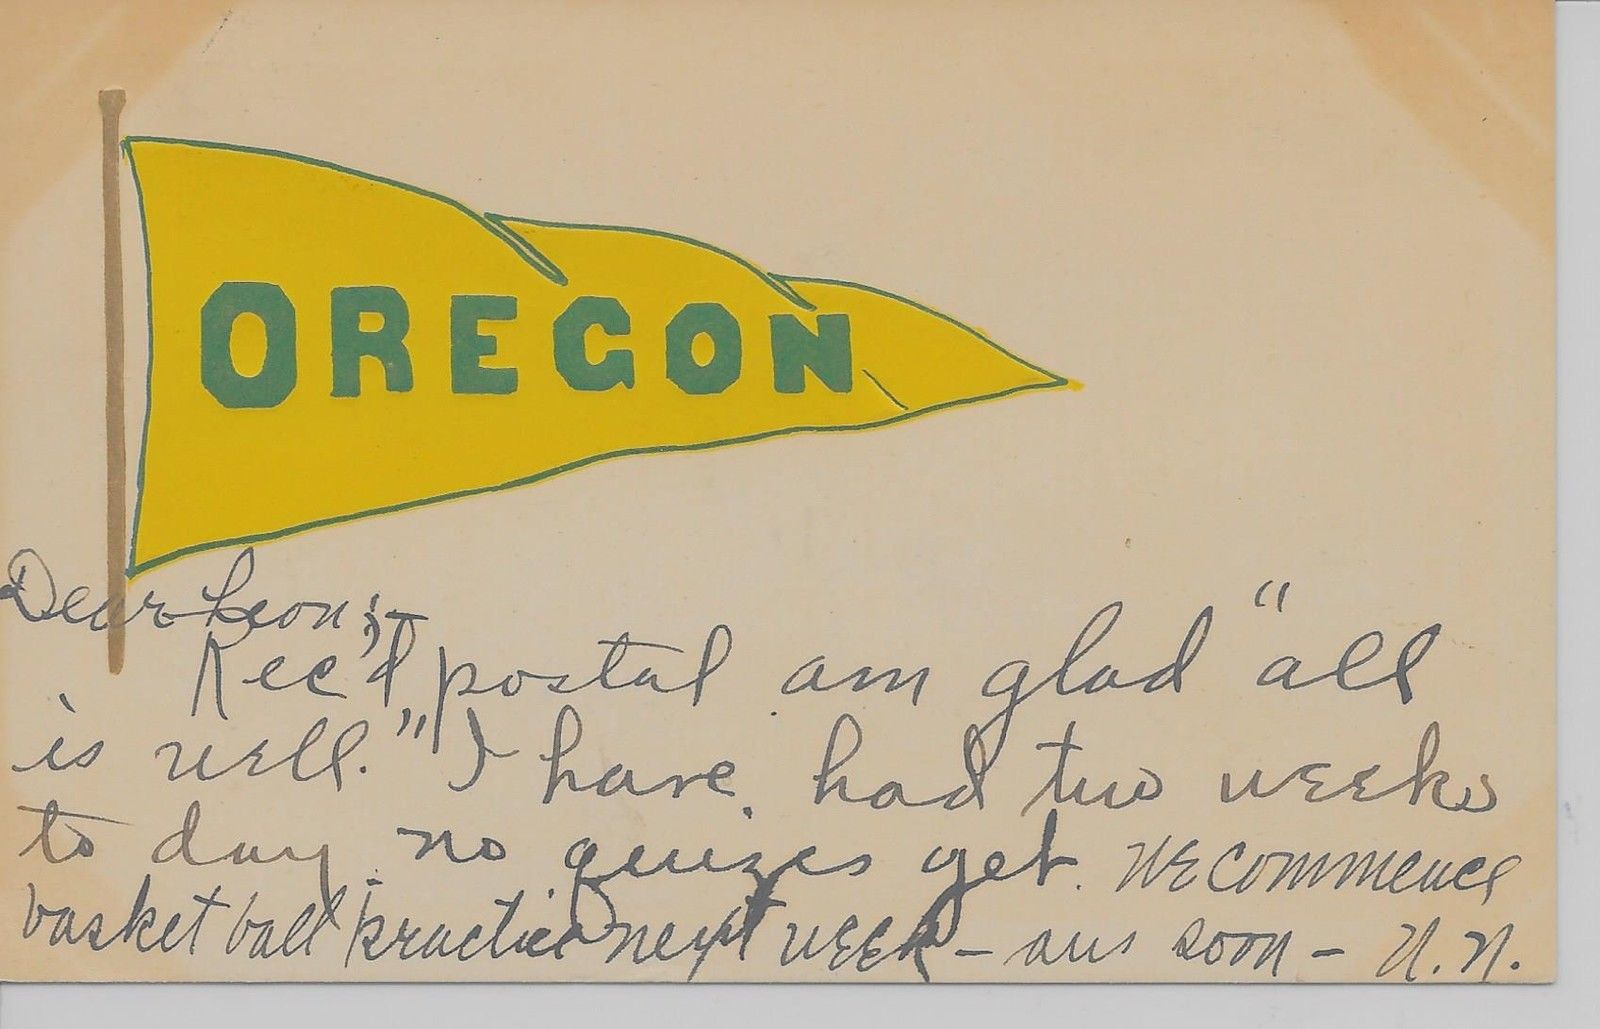 OREGON
Dear Leon;—
Rec'd postal am glad "all
is well." I have had two weeks
to day. no quizes yet. We commence
basket ball practice next week – ans soon – N. N.